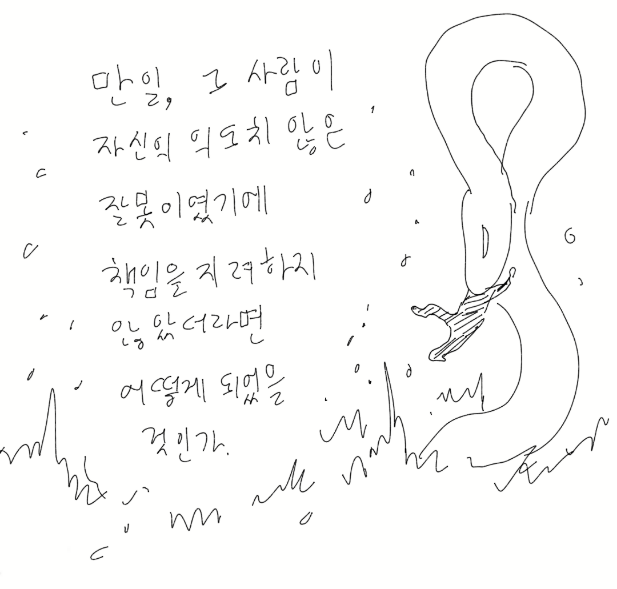 만일, 그 사람이
자신의 의도치 않은
잘못이였기에
책임을 지려하지
않았더라면
어떻게 되었을
것인가.